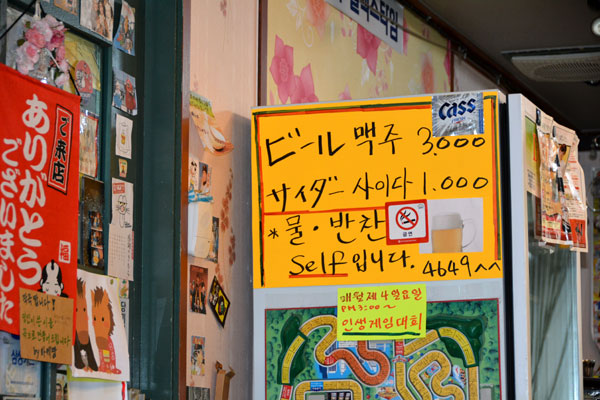 ご来店
ありがとう
ございました
福
CASS
ビール 맥주 3,000
サイダー 사이다 1,000
*물·반찬
금연
Self입니다.
4649^^
매월 제4일요일
PM 3:00~
인생게임대회